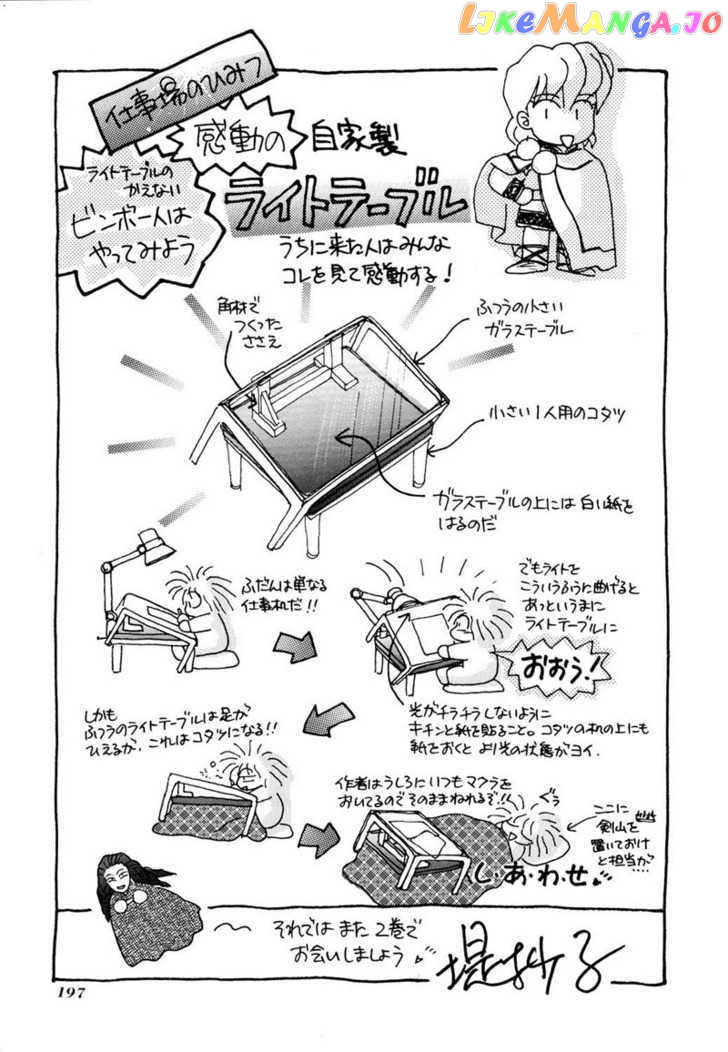 LIKEMANGA.IO
仕事場のひみつ
感動の
自家製
ライトテーブル
ライトテーブルの
かえない
ビンボー人は
やってみよう
うちに来た人はみんな
コレを見て感動する!
角材で
つくった
ささえ
ふつうの小さい
ガラステーブル
小さい1人用のコタツ
ガラステーブルの上には白い紙を
はるのだ
ふだんは単なる
仕事机だ!!
でもライトを
こういうふうに曲げると
あっというまに
ライトテーブルに
おおう!
光がチラチラしないように
キチンと紙を貼ること。コタツの机の上にも
紙をおくとより光の状態がヨイ.
しかも
ふつうのライトテーブルは足が
ひえるが、これはコタツになる!!
作者はうしろにいつもマクラを
おいてるのでそのままねれるぞ!!
ぐぅ
ここに
剣山を
置いておけ
と担当が…
し・あ・わ・せ
それではまた2巻で
お会いしましょう
堤抄子
197